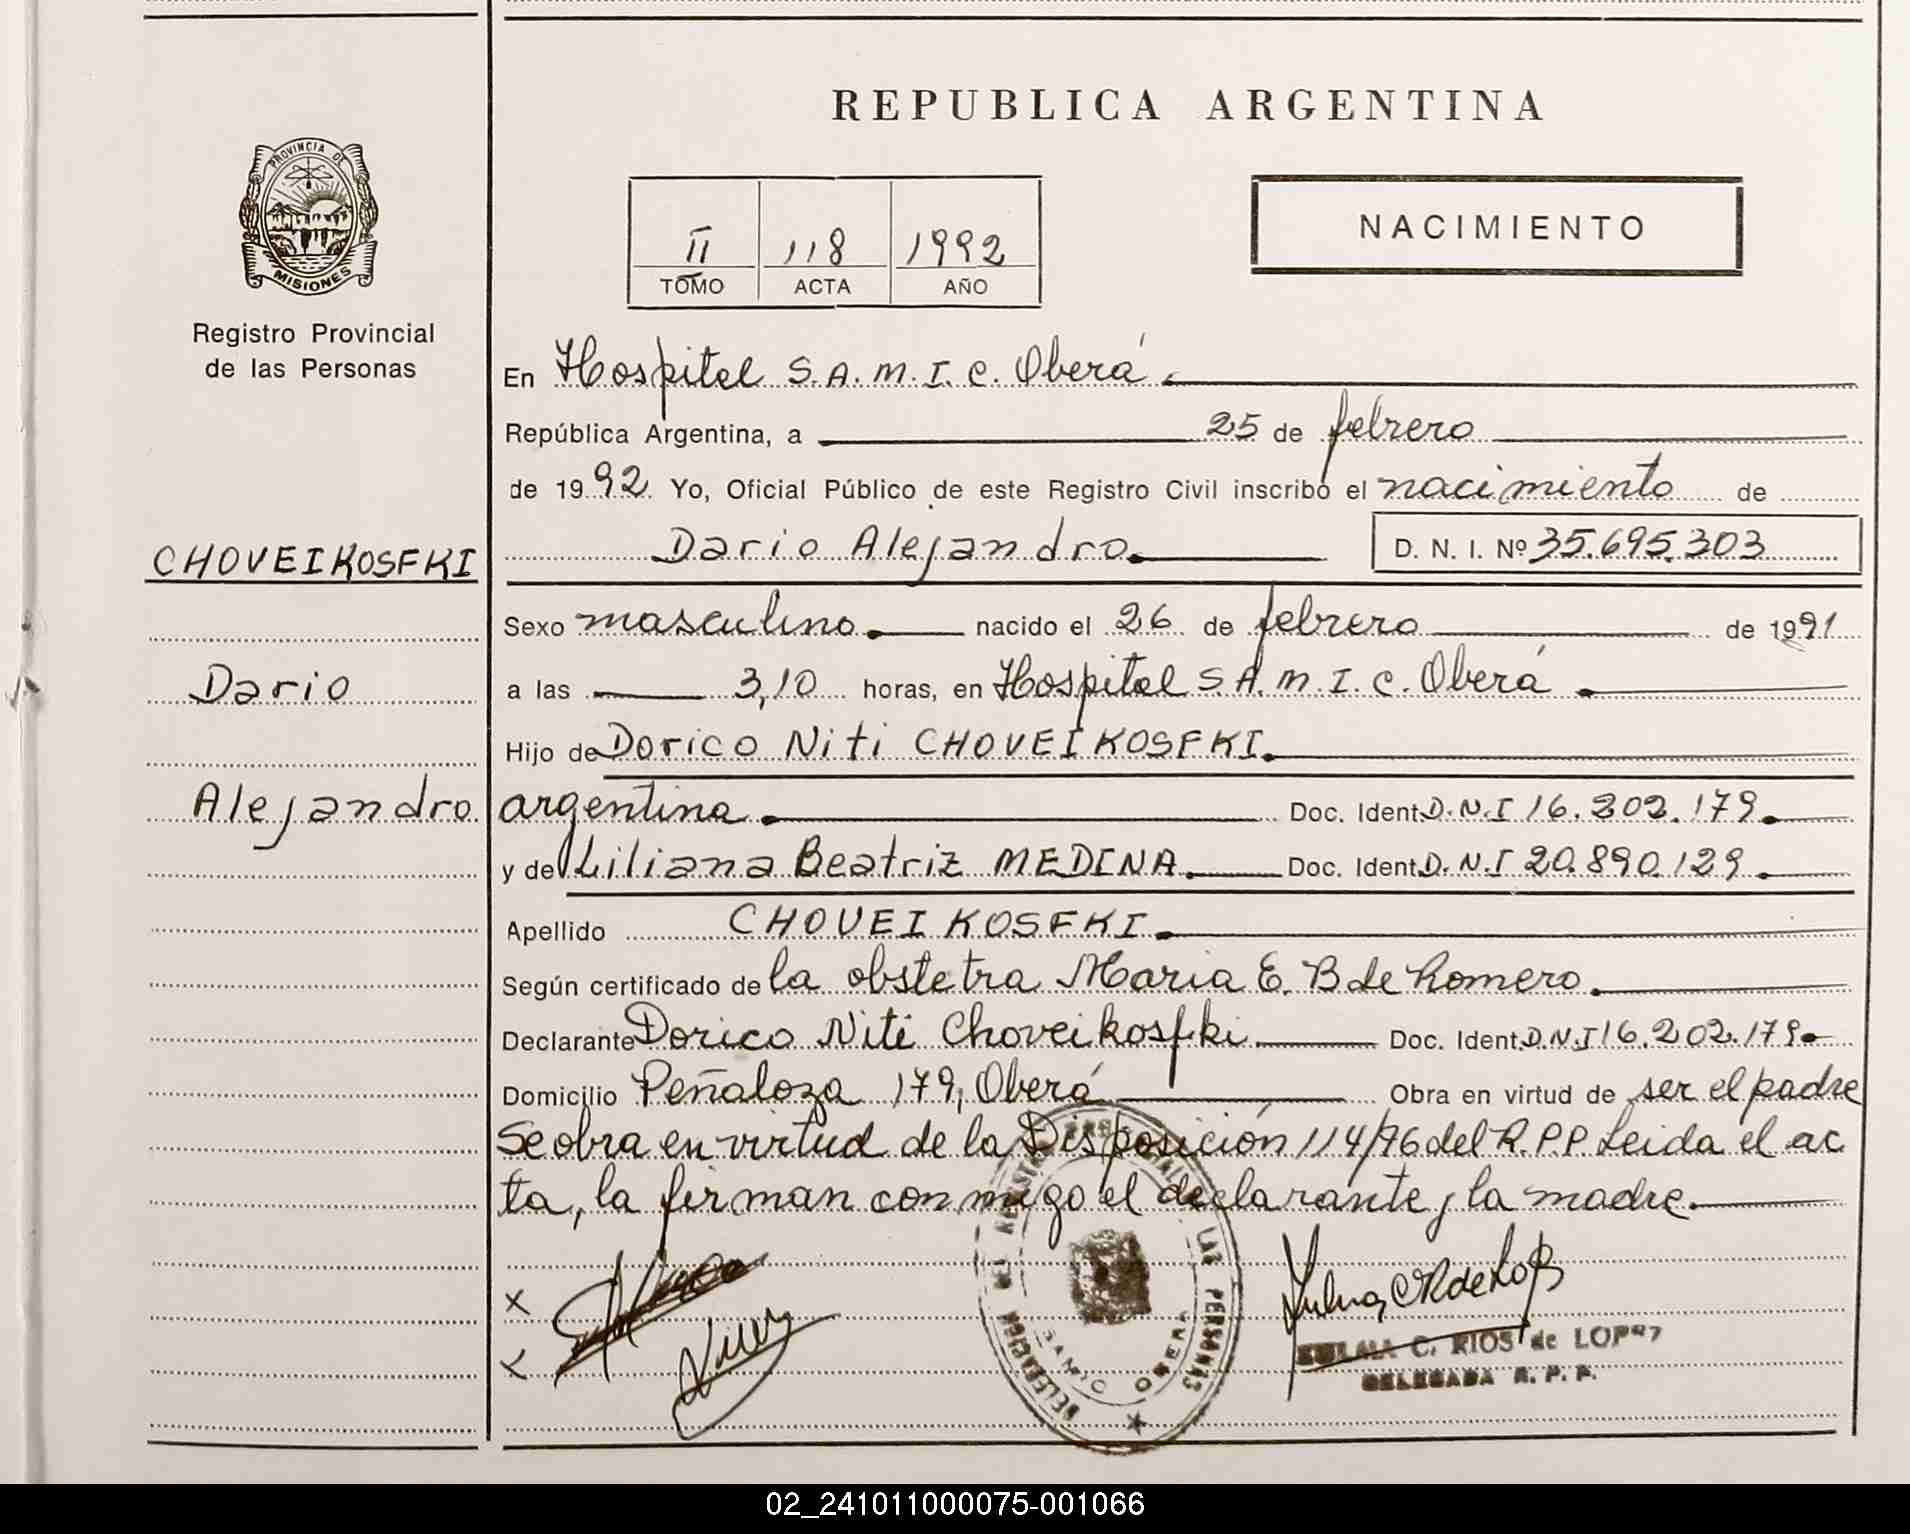 REPUBLICA ARGENTINA
PROVINCIA DE
MISIONES
Registro Provincial
de las Personas
II 118 1992
TOMO ACTA AÑO
NACIMIENTO
En Hospital S.A.M.I.C. Oberá.
República Argentina, a 25 de febrero
de 1992. Yo, Oficial Público de este Registro Civil inscribo el nacimiento de
Dario Alejandro. D. N. I. Nº 35.695.303
CHOVEIKOSFKI
Dario
Alejandro
Sexo masculino. nacido el 26 de febrero de 1991
a las 3,10 horas, en Hospital S.A.M.I.C. Oberá.
Hijo de Dorico Niti CHOVEIKOSFKI.
argentina. Doc. Ident. D.N.I 16.202.179.
y de Liliana Beatriz MEDINA. Doc. Ident. D.N.I 20.890.129.
Apellido CHOVEIKOSFKI.
Según certificado de la obstetra Maria E. B de Romero.
Declarante Dorico Niti Choveikosfki Doc. Ident. D.N.I 16.202.179.
Domicilio Peñaloza 179, Oberá Obra en virtud de ser el padre
Se obra en virtud de la Disposición 114/76 del R.P.P. Leida el ac
ta, la firman conmigo el declarante y la madre.
X
X
DELEGACION DEL REGISTRO LAS PERSONAS
ZULMA C. RIOS de LOPEZ
DELEGADA R. P. P.
02_241011000075-001066